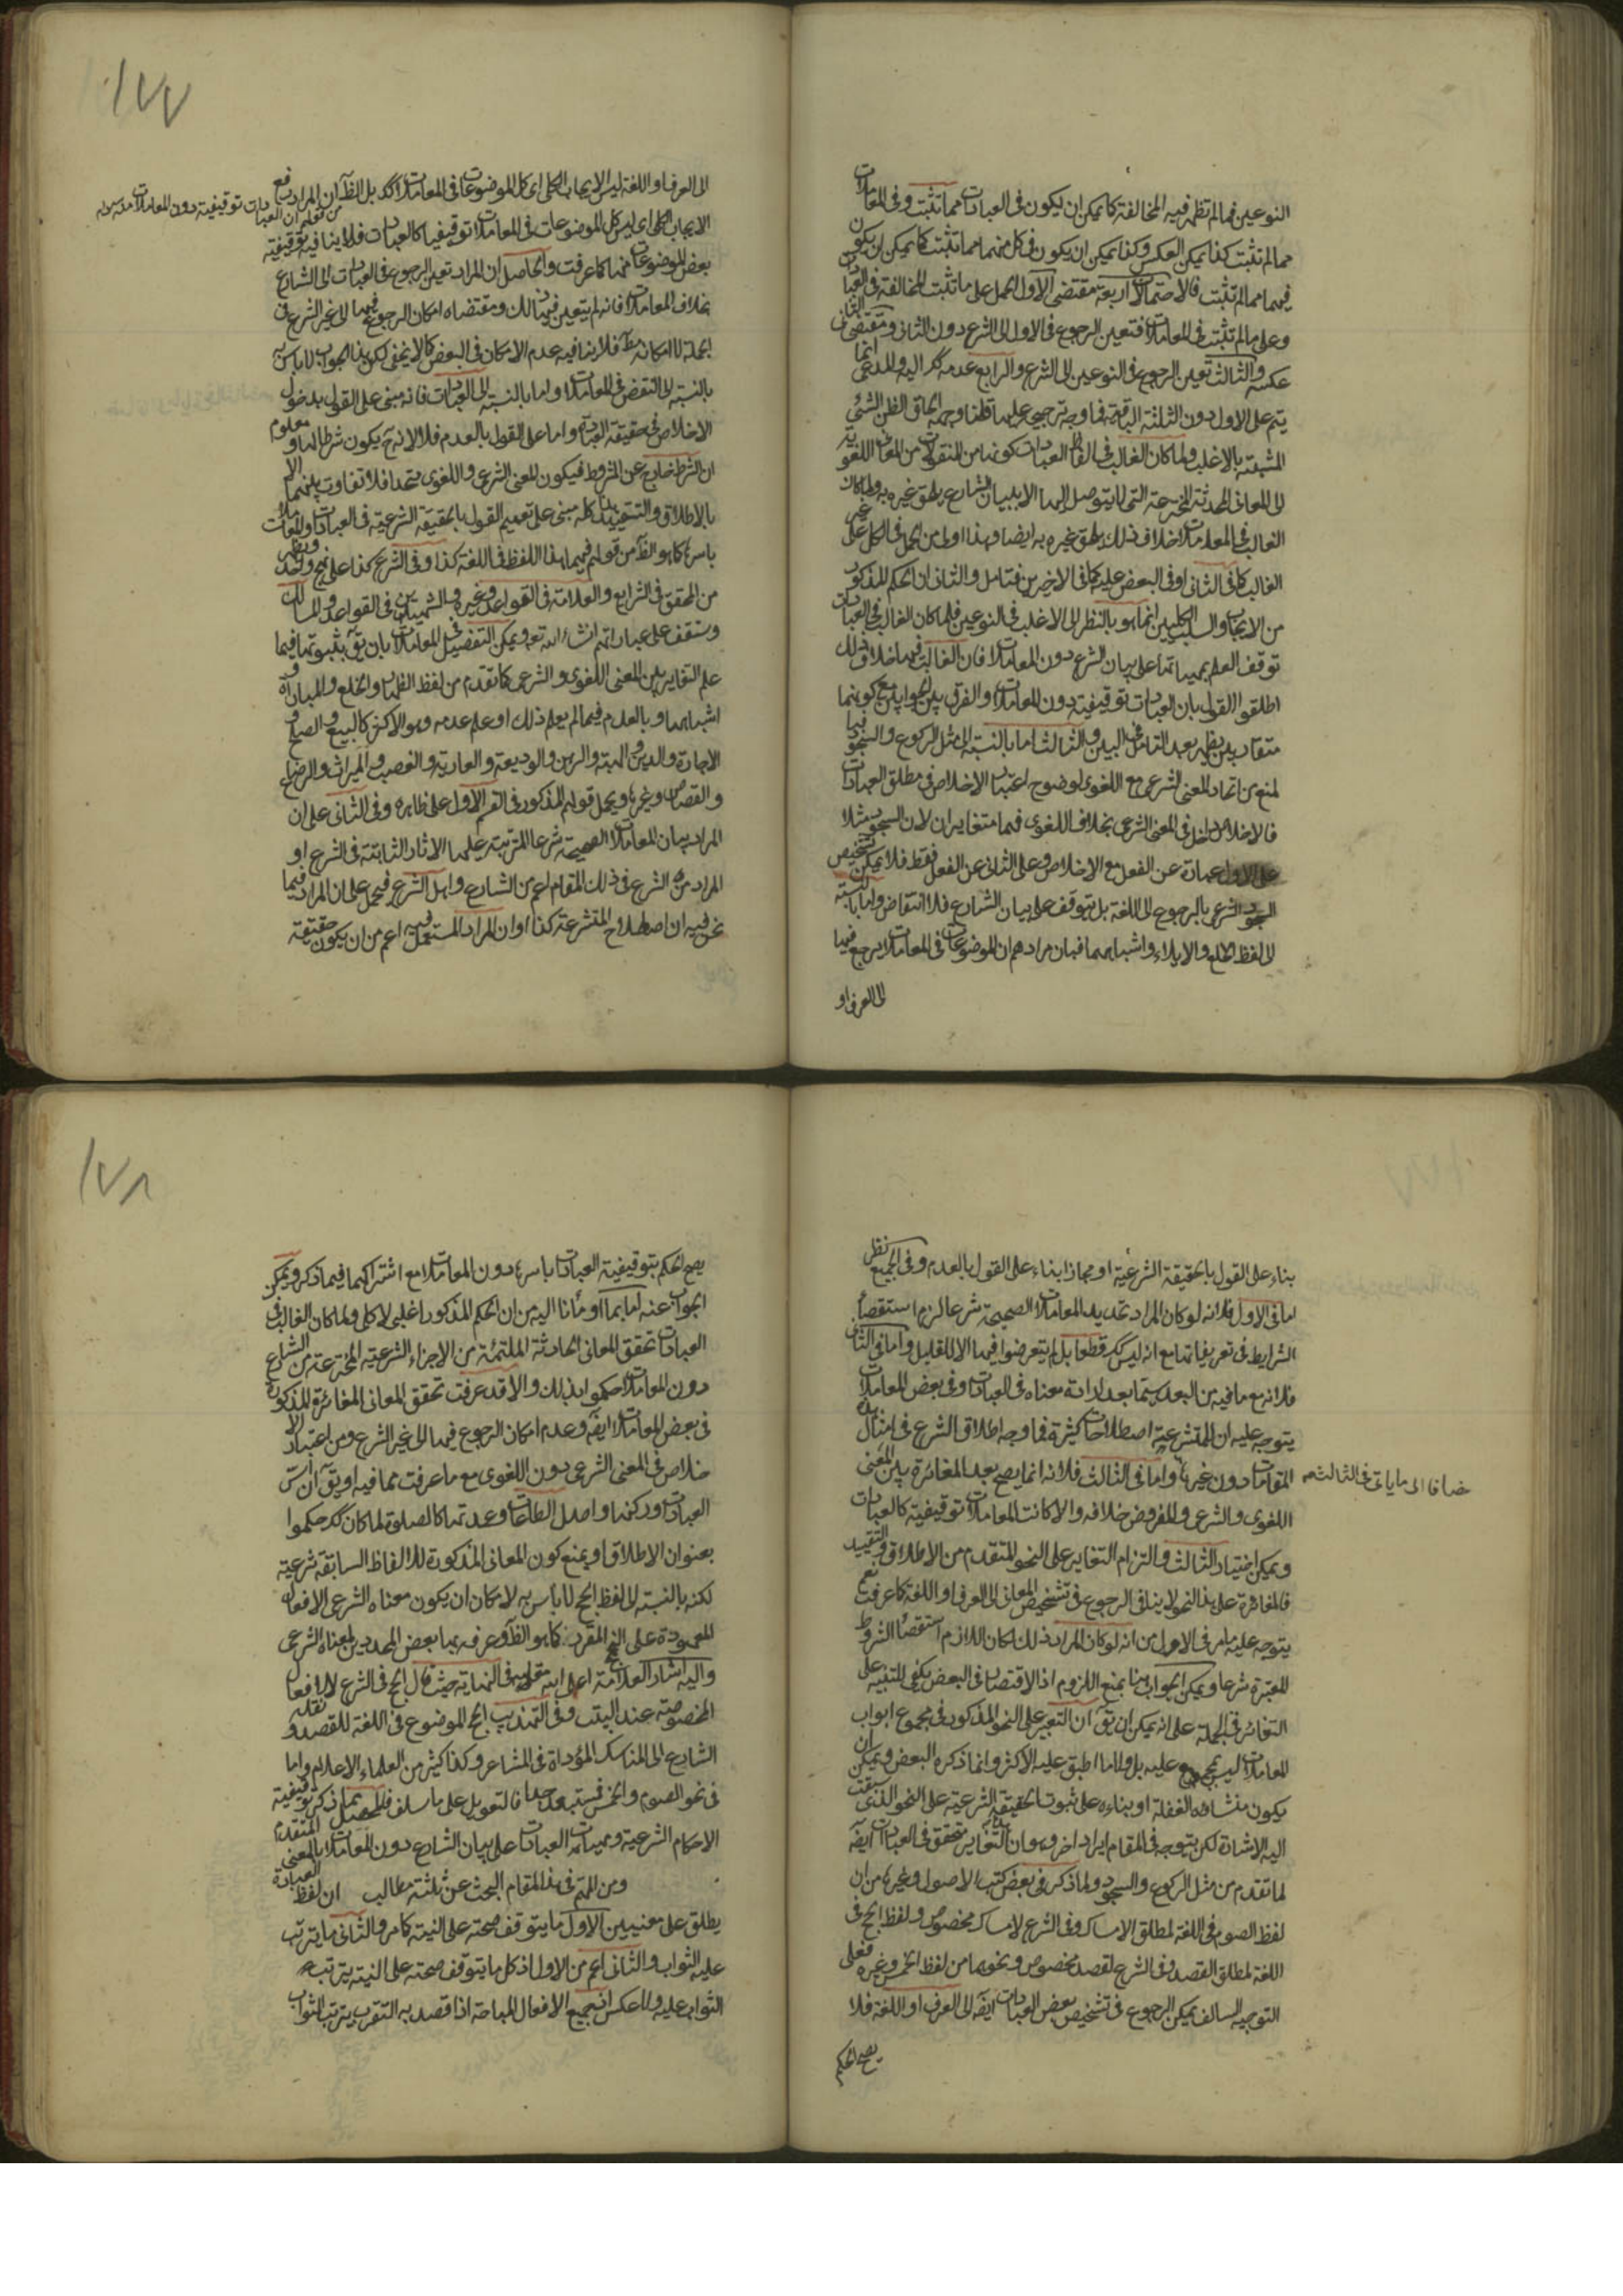 النوعين فما لم تظهر فيه المخالفة كما يمكن ان يكون في العبادات مما تثبت وفي المعاملات
مما لم تثبت كذا يمكن العكس وكذا يمكن ان يكون في كل منهما مما تثبت كما يمكن ان يكون
فيهما مما لم تثبت فالاحتمالات اربعة مقتضى الاول الحمل على ما تثبت المخالفة في العبادات
وعلى ما لم تثبت في المعاملات فتعين الرجوع في الاول الى الشرع دون الثاني ومقتضى الثاني
عكسه والثالث تعين الرجوع في النوعين الى الشرع والرابع عدمه كذلك اليه والمدعى انما
يتم على الاول دون الثلثة الباقية فما وجه ترجيحه عليها قلنا وجهه الحاق الظن الشئ
المشتبه بالاغلب ولما كان الغالب في الفاظ العبادات كونها من المنقولات من المعاني اللغوية
الى المعاني المحدثة المخترعة التي لا يتوصل اليها الا ببيان الشارع يلحق غيره به ولما كان
الغالب في المعاملات خلاف ذلك يلحق غيره به ايضا وهذا اولى من الحمل في الكل على غير
الغالب كما في الثاني او في البعض عليه كما في الاخيرين فتامل والثاني ان الحكم المذكور
من الايجاب والسلب الكليين انما هو بالنظر الى الاغلب في النوعين فلما كان الغالب في العبادات
توقف العلم بمهياتها على بيان الشرع دون المعاملات فان الغالب فيها خلاف ذلك
اطلقوا القول بان العبادات توقيفية دون المعاملات والفرق بين الجوابين مع كونهما
متقاربين يظهر بعد التامل في البين والثالث اما بالنسبة الى مثل الركوع والسجود فبما
لمنع من اتحاد المعنى الشرعي مع اللغوي لوضوح اعتبار الاخلاص في مطلق العبادات
فالاخلاص داخل في المعنى الشرعي بخلاف اللغوي فهما متغايران لان السجود مثلا
على الاول عبارة عن الفعل مع الاخلاص وعلى الثاني عن الفعل فقط فلا يمكن تشخيص
السجود الشرعي بالرجوع الى اللغة بل يتوقف على بيان الشارع فلا انتقاض واما بالنسبة
الى لفظ الخلع والايلاء واشباههما فبان مرادهم ان الموضوعات في المعاملات يرجع فيها
الى العرف او
١٧٧
الى العرف او اللغة ليس الايجاب الكلي اي كل الموضوعات في المعاملات كذلك بل الظاهر ان المراد رفع
من قولهم ان العبادات توقيفية دون المعاملات منه
الايجاب الكلي اي ليس كل الموضوعات في المعاملات توقيفيا كالعبادات فلا ينافيه توقيفية
بعض الموضوعات منها كما عرفت والحاصل ان المراد تعين الرجوع في العبادات الى الشارع
بخلاف المعاملات فانه لم يتعين فيها ذلك ومقتضاه امكان الرجوع فيها الى غير الشرع في
الجملة لا امكانه مط فلا ينافيه عدم الامكان في البعض كما لا يخفى لكن هذا الجواب لا باس به
بالنسبة الى النقض في المعاملات واما بالنسبة الى العبادات فانه مبني على القول بدخول
الاخلاص في حقيقة العبادة واما على القول بالعدم فلا لانه ح يكون شرطا لها ومعلوم
ان الشرط خارج عن المشروط فيكون المعنى الشرعي واللغوي متحدا فلا تفاوت بينهما الا
بالاطلاق والتقييد هذا كله مبني على تعميم القول بالحقيقة الشرعية في العبادات والمعاملات
باسرها كما هو الظاهر من قولهم فيهما هذا اللفظ في اللغة كذا وفي الشرع كذا على نهج واحد ويظهر
من المحقق في الشرايع والعلامة في القواعد وغيره والشهيدين في القواعد والمسالك
وستقف على عباراتهم انشاء الله تعه ويمكن التفصيل في المعاملات بان يق بثبوتها فيما
علم التغاير بين المعنى اللغوي والشرعي كما تقدم من لفظ الظهار والخلع والمباراة و
اشباهها وبالعدم فيما لم يعلم ذلك او علم عدمه وهو الاكثر كالبيع والصلح و
الاجارة والدين والهبة والرهن والوديعة والعارية والغصب والميراث والرضاع
والقصاص وغيرها ويحمل قولهم المذكور في القسم الاول على ظاهره وفي الثاني على ان
المراد بيان المعاملات الصحيحة شرعا المترتبة عليها الاثار الثابتة في الشرع او
المراد من الشرع في ذلك المقام اعم من الشارع واهل الشرع فيحمل على ان المراد فيما
نحن فيه ان اصطلاح المتشرعة كذا او ان المراد المستعمل فيه اعم من ان يكون حقيقة
بناء على القول بالحقيقة الشرعية او مجازا بناء على القول بالعدم وفي الجميع نظر
اما في الاول فلانه لو كان المراد تحديد المعاملات الصحيحة شرعا لزم استقصاء
الشرايط في تعريفاتها مع انه ليس كك قطعا بل لم يتعرضوا فيها الا للقليل واما في الثاني
فلانه مع ما فيه من البعد سيما بعد ارادة معناه في العبادات وفي بعض المعاملات
يتوجه عليه ان للمتشرعة اصطلاحات كثيرة فما وجه اطلاق الشرع في امثال هذه
المقامات دون غيرها واما في الثالث فلانه انما يصح بعد المغائرة بين المعنى
ضافا الى ما ياتي في الثالث منه
اللغوي والشرعي والمفروض خلافه والا كانت المعاملات توقيفية كالعبادات
ويمكن اختيار الثالث والتزام التغاير على النحو المتقدم من الاطلاق والتقييد
فالمغائرة على هذا النحو لا ينافي الرجوع في تشخيص المعاني الى العرف او اللغة كما عرفت نعم
يتوجه عليه ما مر في الاول من انه لو كان المراد ذلك لكان اللازم استقصاء الشروط
المعتبرة شرعا ويمكن الجواب هنا بمنع اللزوم اذ الاقتصار في البعض يكفي للتنبيه على
التغائر في الجملة على انه يمكن ان يق ان التعبير على النحو المذكور في مجموع ابواب
المعاملات ليس بمجمع عليه بل ولا مما اطبق عليه الاكثر وانما ذكره البعض ويمكن ان
يكون منشاه الغفلة او بناءه على ثبوت الحقيقة الشرعية على النحو الذي سبقت
اليه الاشارة لكن يتوجه في المقام ايراد اخر وهو ان التغاير متحقق في العبادات ايضه
لما تقدم من مثل الركوع والسجود ولما ذكر في بعض كتب الاصول وغيرها من ان
لفظ الصوم في اللغة لمطلق الامساك وفي الشرع لامساك مخصوص ولفظ الحج في
اللغة لمطلق القصد وفي الشرع لقصد مخصوص ونحوها من لفظ الخمس وغيره فعلى
التوجيه السالف يمكن الرجوع في تشخيص بعض العبادات ايضه الى العرف او اللغة فلا
يصح الحكم
١٧٨
يصح الحكم بتوقيفية العبادات باسرها دون المعاملات مع اشتراكهما فيما ذكر ويمكن
الجواب عنه اما بما اومأنا اليه من ان الحكم المذكور اغلبي لا كلي ولما كان الغالب في
العبادات تحقق المعاني الحادثة الملتئمة من الاجزاء الشرعية المخترعة من الشارع
دون المعاملات حكموا بذلك والا قد عرفت تحقق المعاني المغائرة المذكورة
في بعض المعاملات ايضه وعدم امكان الرجوع فيها الى غير الشرع ومن اعتبار الا
خلاص في المعنى الشرعي دون اللغوي مع ما عرفت مما فيه او يق ان اس
العبادات وركنها واصل الطاعات وعمدتها كالصلوة لما كان كك حكموا
بعنوان الاطلاق او يمنع كون المعاني المذكورة للالفاظ السابقة شرعية
لكنه بالنسبة الى لفظ الحج لا بأس به لامكان ان يكون معناه الشرعي الافعال
المعهودة على النهج المقرر كما هو الظاهر وعرفه بها بعض المحددين لمعناه الشرعي
واليه اشار العلامة اعلى الله مقامه في النهاية حيث قال الحج في الشرع للافعال
المخصوصة عند البيت وفي التهذيب الحج الموضوع في اللغة للقصد ونقله
الشارع الى المناسك المؤداة في المشاعر وكذا كثير من العلماء الاعلام واما
في نحو الصوم والخمس فمستبعد جدا فالتعويل على ما سلف فالمحصل مما ذكر توقيفية
الاحكام الشرعية ومهيات العبادات على بيان الشارع دون المعاملات بالمعنى المتقدم
ومن المهم في هذا المقام البحث عن ثلثة مطالب ان لفظ العبادة
يطلق على معنيين الاول ما يتوقف صحته على النية كما مر والثاني ما يترتب
عليه الثواب والثاني اعم من الاول اذ كل ما يتوقف صحته على النية يترتب
الثواب عليه ولا عكس اذ جميع الافعال المباحة اذا قصد به التقرب يترتب الثواب